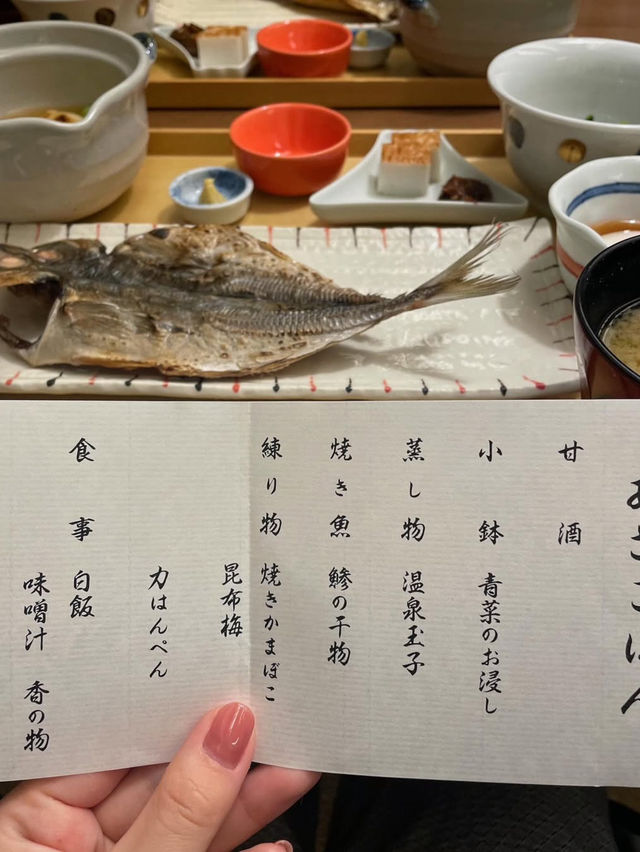 あさごはん
甘酒
小鉢 青菜のお浸し
蒸し物 温泉玉子
焼き魚 鯵の干物
練り物 焼きかまぼこ
昆布梅
力はんぺん
食事 白飯
味噌汁 香の物